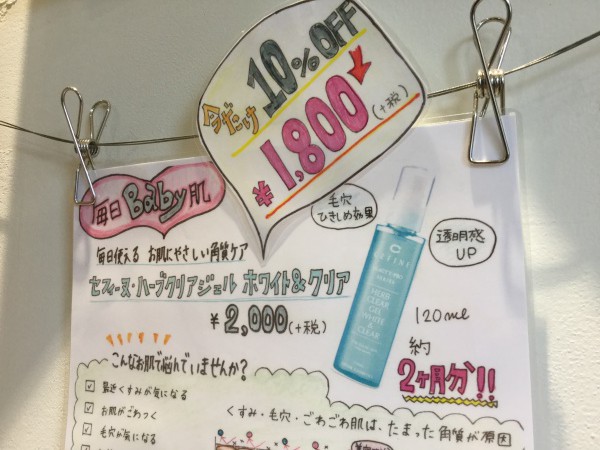 今だけ 10%OFF
¥1,800(+税)
毎日Baby肌
毛穴
ひきしめ効果
透明感
UP
毎日使える お肌にやさしい角質ケア
セフィーヌ・ハーブクリアジェル ホワイト&クリア
¥2,000(+税)
CEFINE
HERB
CLEAR
GEL
WHITE &
CLEAR
120ml
約
2ヶ月分!!
こんなお肌で悩んでいませんか?
最近くすみが気になる
お肌がごわつく
毛穴が気になる
くすみ・毛穴・ごわごわ肌は、たまった角質が原因